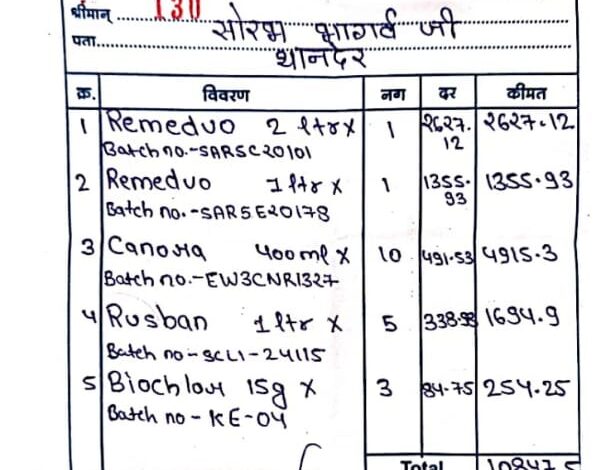 श्रीमान् 130 सोरभ भार्गव जी
पता थानदेर
क्र. विवरण नग दर कीमत
1 Remeduo 2 ltr x 1 2627.12 2627.12
Batch no.-SARSC20101
2 Remeduo 1 ltr x 1 1355.93 1355.93
Batch no.-SARSE20178
3 Canora 400ml x 10 491.53 4915.3
Batch no.-EW3CNR1327
4 Rusban 1 ltr x 5 338.98 1694.9
Batch no-SCL1-24115
5 Biochlor 15g x 3 84.75 254.25
Batch no-KE-04
Total 10847.5